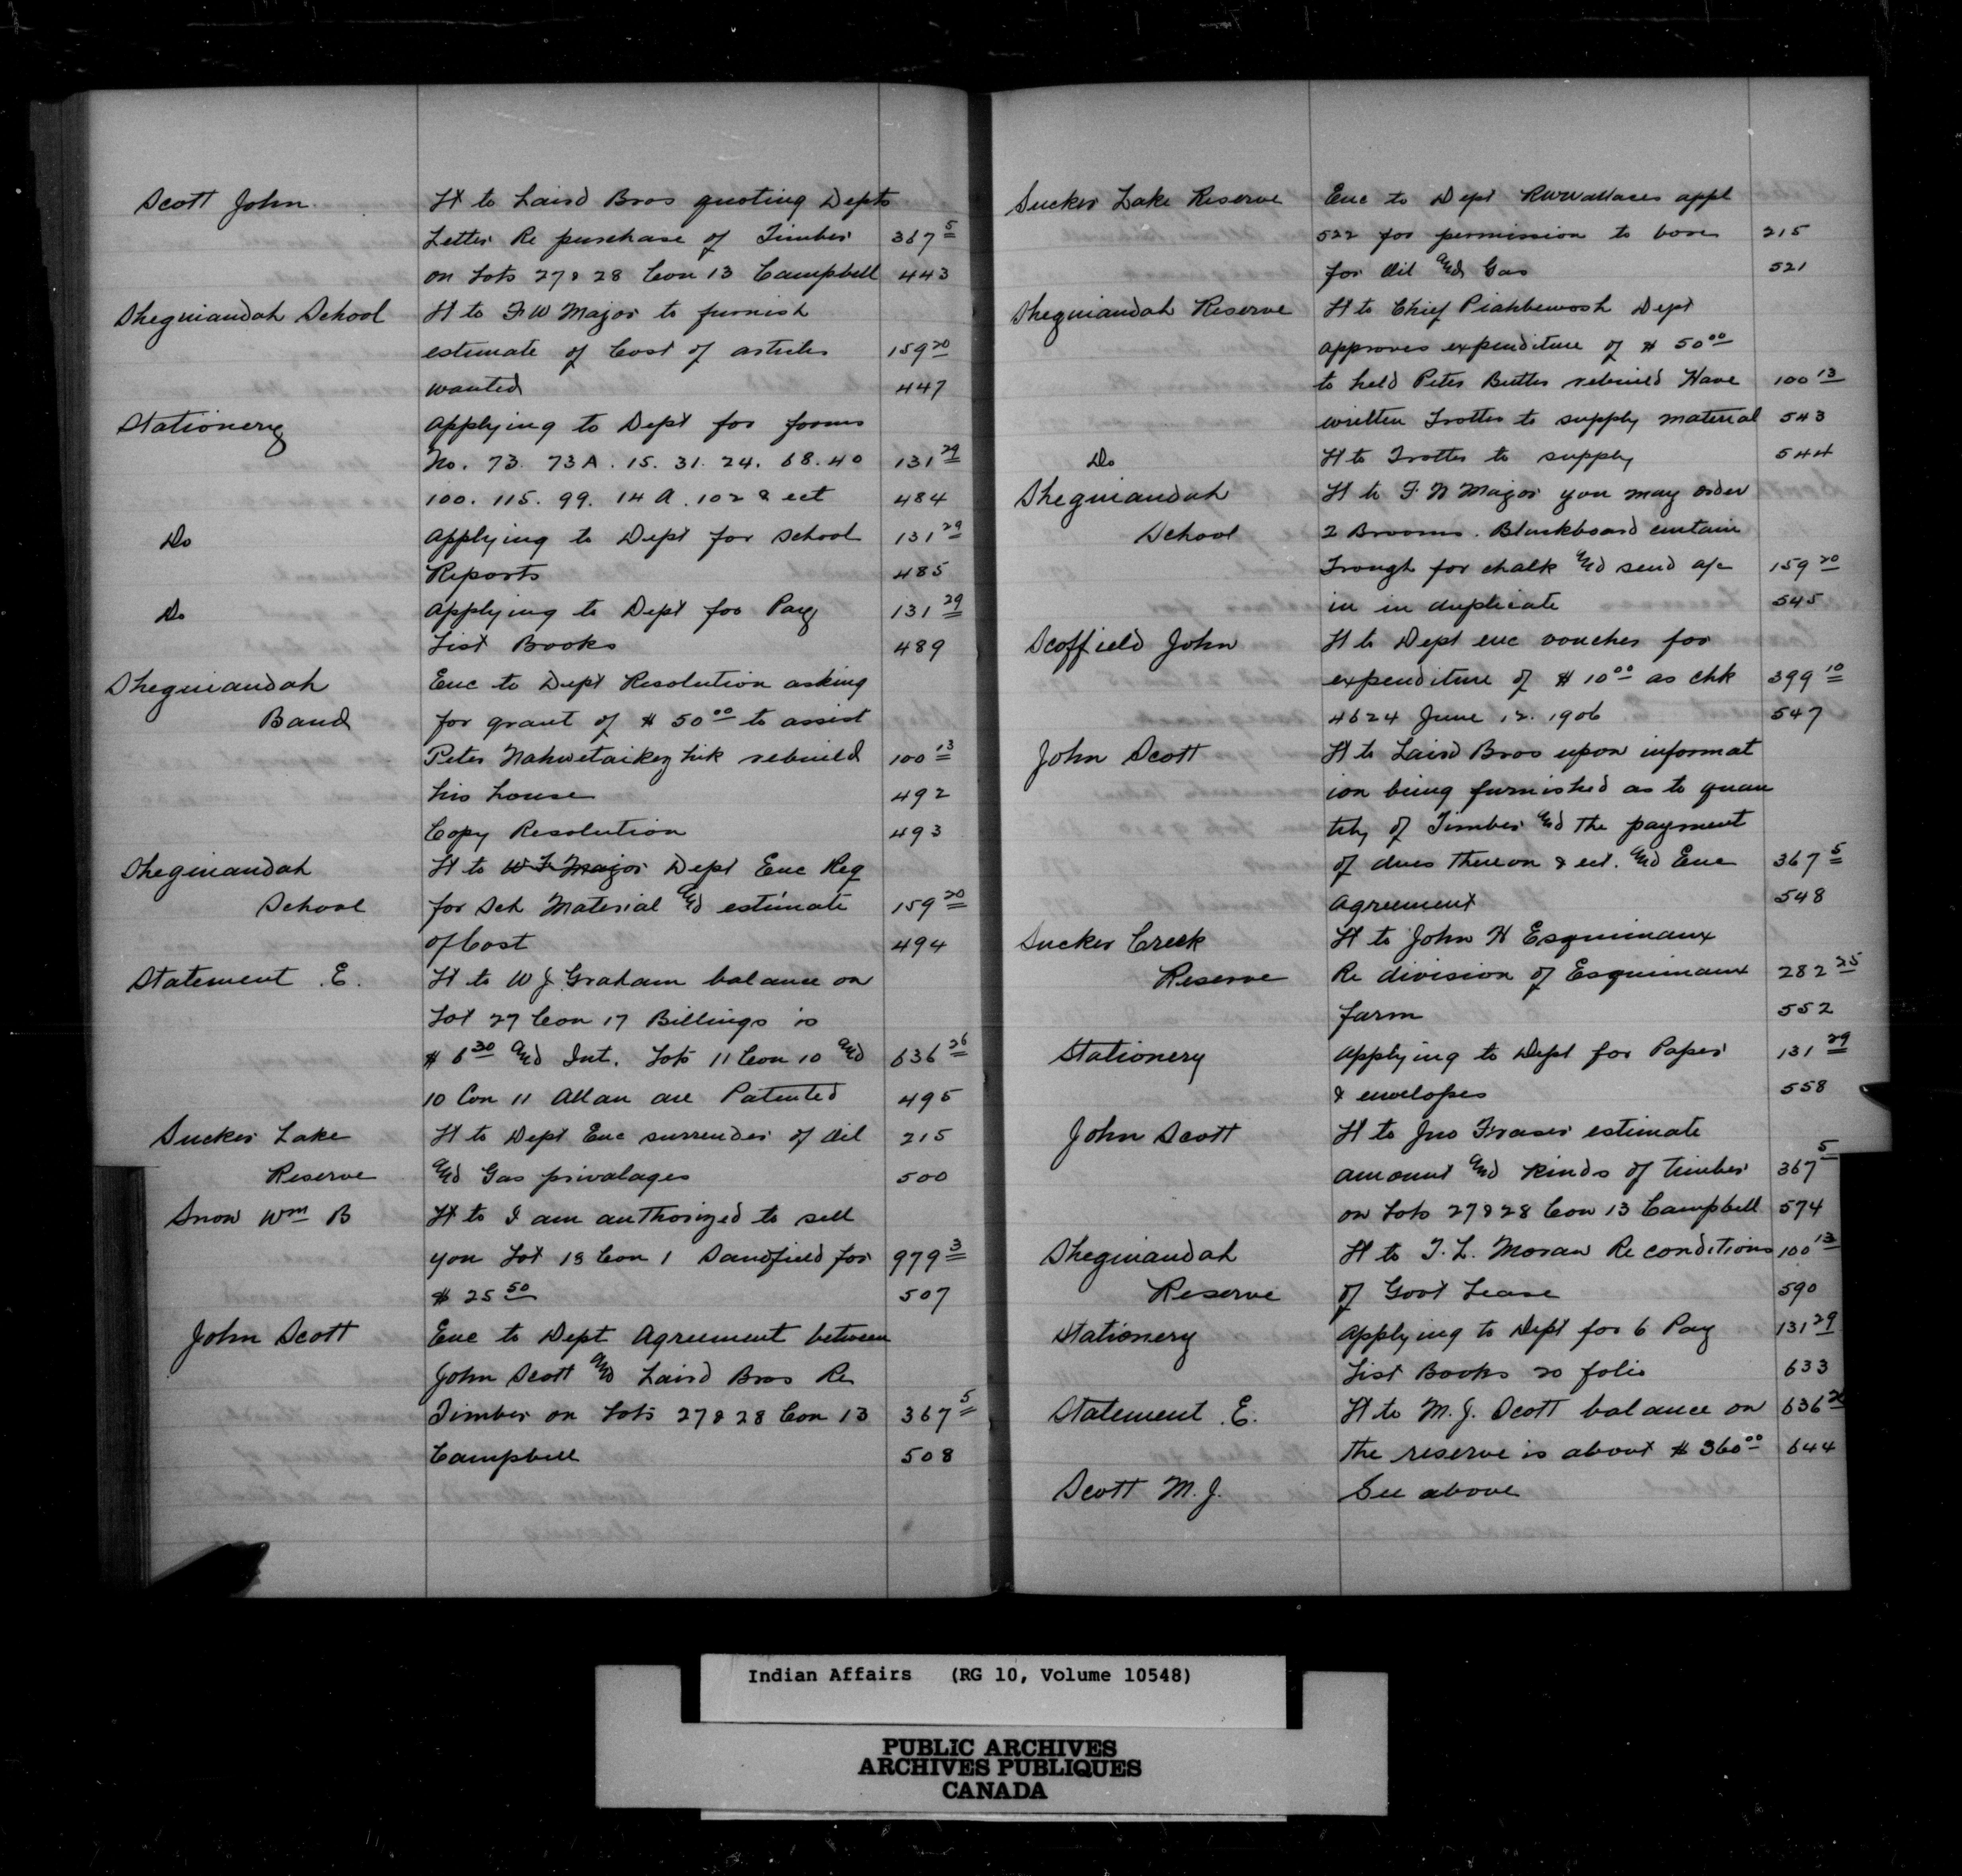 Scott John Lt to Laird Bros quoting Depts
Letter Re purchase of Timber 367 5
on Lots 27 & 28 Con 13 Campbell 443
Sheguiandah School Lt to F W Major to furnish
estimate of Cost of articles 159 20
wanted 447
Stationery Applying to Dept for forms
No. 73. 73A. 15. 31. 24. 68. 40 131 29
100. 115. 99. 14 A. 102 & ect 484
Do Applying to Dept for School 131 29
Reports 485
Do Applying to Dept for Pay 131 29
List Books 489
Sheguiandah Enc to Dept Resolution asking
Band for grant of $ 50 00 to assist
Peter Nahwetaikezhik rebuild 100 13
his house 492
Copy Resolution 493
Sheguiandah Lt to W F Major Dept Enc Req
School for Sch Material and estimate 159 20
of Cost 494
Statement .E. Lt to W J Graham balance on
Lot 27 Con 17 Billings is
$ 6 30 and Int. Lots 11 Con 10 and 636 26
10 Con 11 Allan are Patented 495
Sucker Lake Lt to Dept Enc surrender of Oil 215
Reserve and Gas privalages 500
Snow Wm B Lt to I am authorized to sell
you Lot 13 Con 1 Sandfield for 979 3
$ 25 50 507
John Scott Enc to Dept Agreement between
John Scott and Laird Bros Re
Timber on Lots 27 & 28 Con 13 367 5
Campbell 508
Sucker Lake Reserve Enc to Dept RWWallaces appl
522 for permission to bore 215
for Oil and Gas 521
Sheguiandah Reserve Lt to Chief Piahbewosh Dept
approves expenditure of $ 50 00
to held Peter Butler rebuild Have 100 13
written Trotter to supply material 543
Do Lt to Trotter to supply 544
Sheguiandah Lt to F. W Major you may order
School 2 Brooms. Blackboard curtain
Trough for chalk and send a/c 159 20
in in duplicate 545
Scoffield John Lt to Dept enc voucher for
expenditure of $ 10 00 as chk 399 10
4624 June 12. 1906 547
John Scott Lt to Laird Bros upon informat
ion being furnished as to quan
tity of Timber and the payment
of dues thereon & ect. and Enc 367 5
agreement 548
Sucker Creek Lt to John H Esquimaux
Reserve Re division of Esquimaux 282 25
farm 552
Stationery Applying to Dept for Paper 131 29
& envelopes 558
John Scott Lt to Jno Fraser estimate
amount and kinds of timber 367 5
on Lots 27 & 28 Con 13 Campbell 574
Sheguiandah Lt to T. L. Moran Re conditions 100 13
Reserve of Govt Lease 590
Stationery Applying to Dept for 6 Pay 131 29
List Books 20 folio 633
Statement .E. Lt to M. J. Scott balance on 636 26
the reserve is about $ 360 00 644
Scott M. J. See above
Indian Affairs (RG 10, Volume 10548)
PUBLIC ARCHIVES
ARCHIVES PUBLIQUES
CANADA